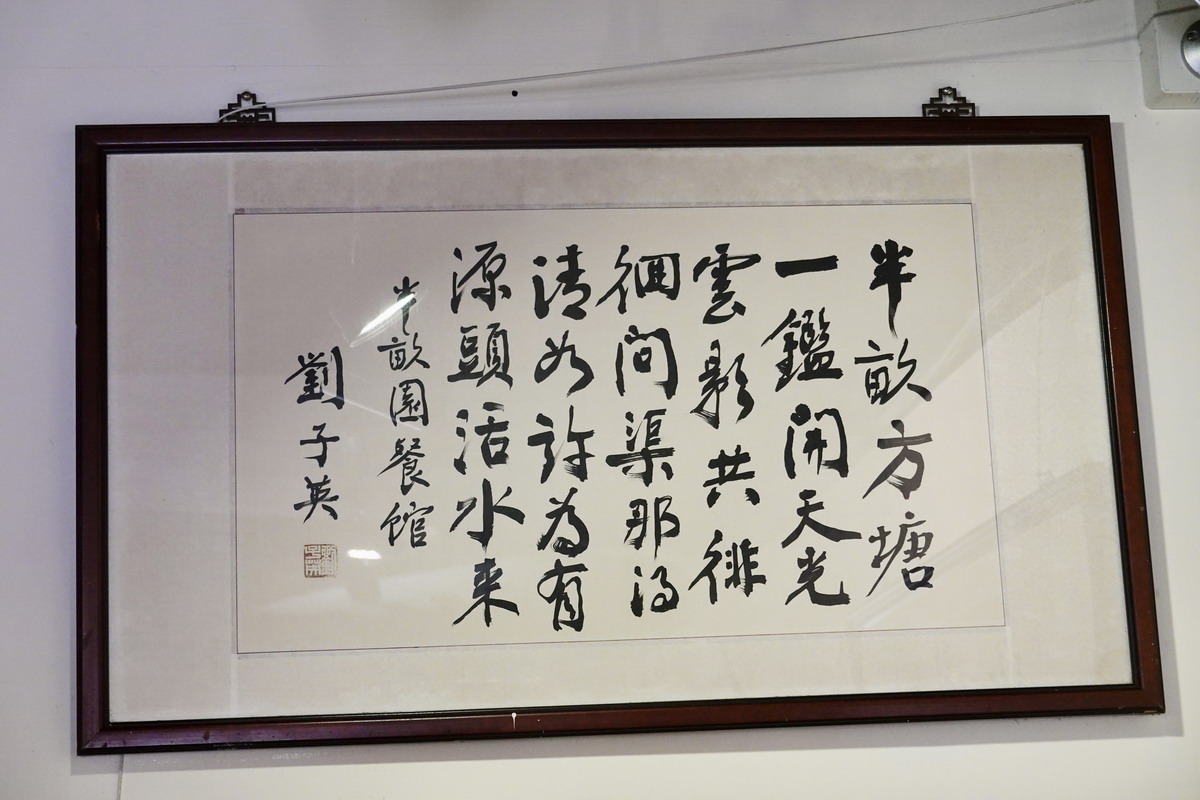 半畝方塘
一鑑開天光
雲影共徘
徊問渠那得
清如許為有
源頭活水来
半畝園餐館
劉子英